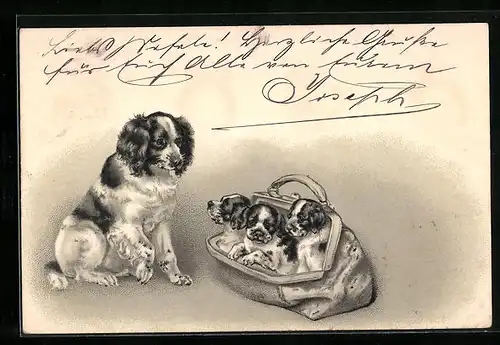 Liebe Stefale! Herzliche Grüße
für Euch Alle von Eurem
Joseph